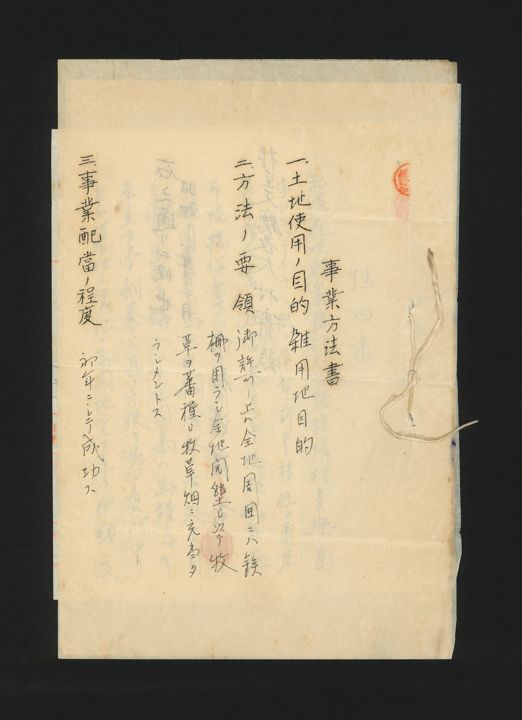 事業方法書
一、土地使用ノ目的 雑用地目的
二、方法ノ要領 御許可ノ上ハ全地周囲ニハ鉄
柵ヲ囲ラシ全地開墾シ以テ牧
草ヲ蕃種シ牧草畑ニ充当タ
ラシメントス
三、事業配當ノ程度 初年ニシテ成功ス